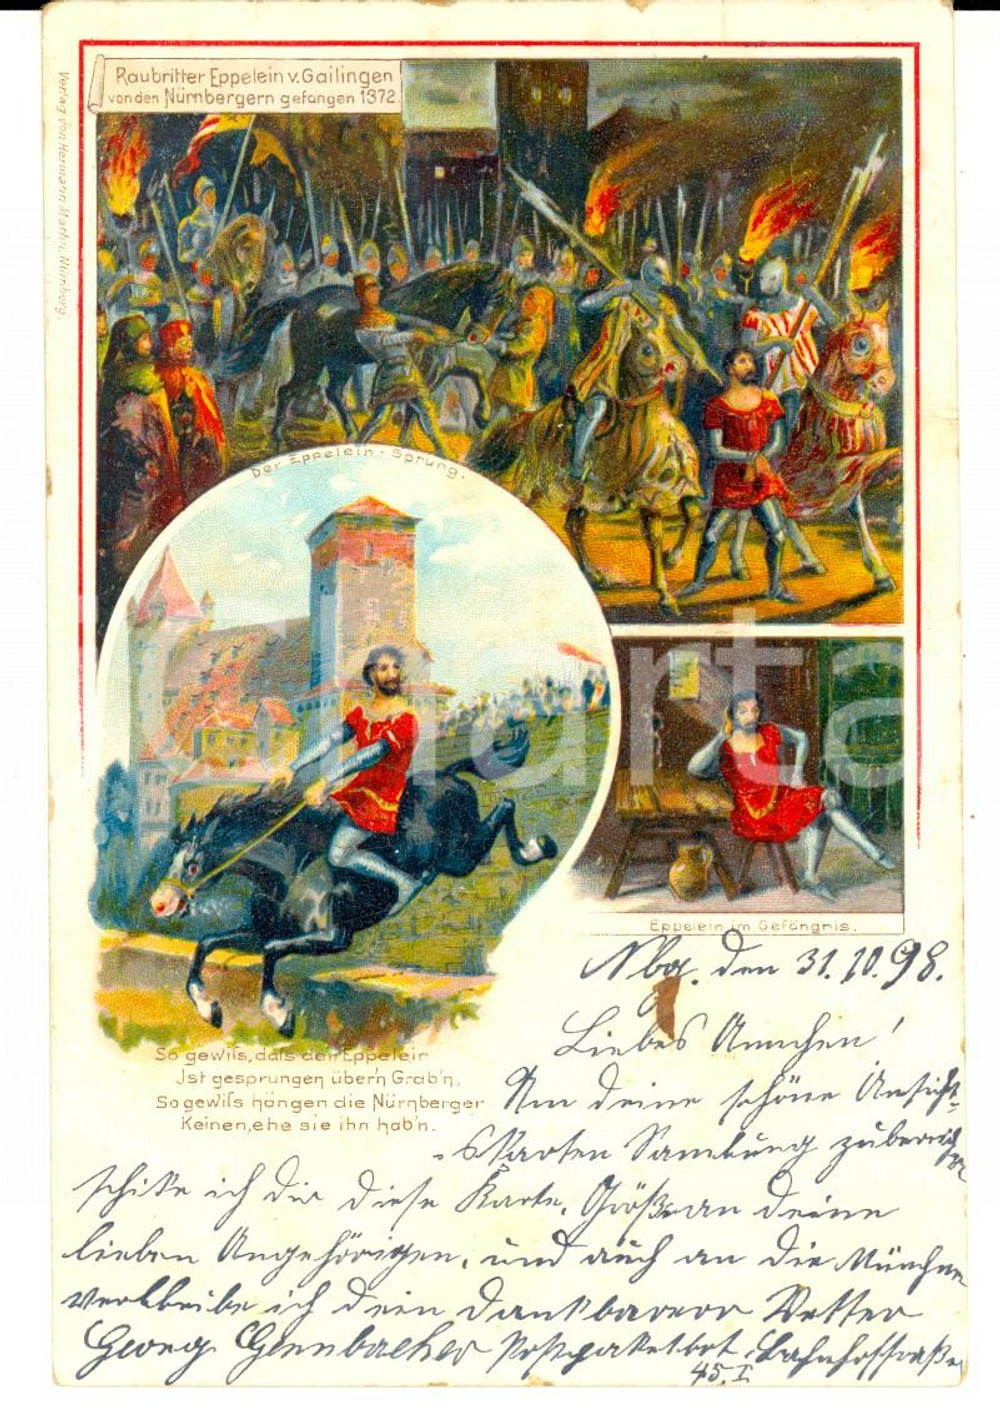 Raubritter Eppelein v. Gailingen
von den Nürnbergern gefangen 1372
Verlag von Hermann Martin, Nürnberg.
Der Eppelein-Sprung.
Eppelein im Gefängnis.
So gewiss, dass der Eppelein
Ist gesprungen über'n Grab'n,
So gewiss hängen die Nürnberger
Keinen, ehe sie ihn hab'n.
Nbg. den 31.10.98.
Liebes Annchen!
Um deine schöne Ansicht-
skarten Samlung zubereich
schike ich dir diese Karte. Grüße an deine
lieben Angehörigen, und auch an die Münchner
verbleibe ich dein dankbarer Vetter
Georg Postpaketbot. Bahnhofstraße
45. I
charta